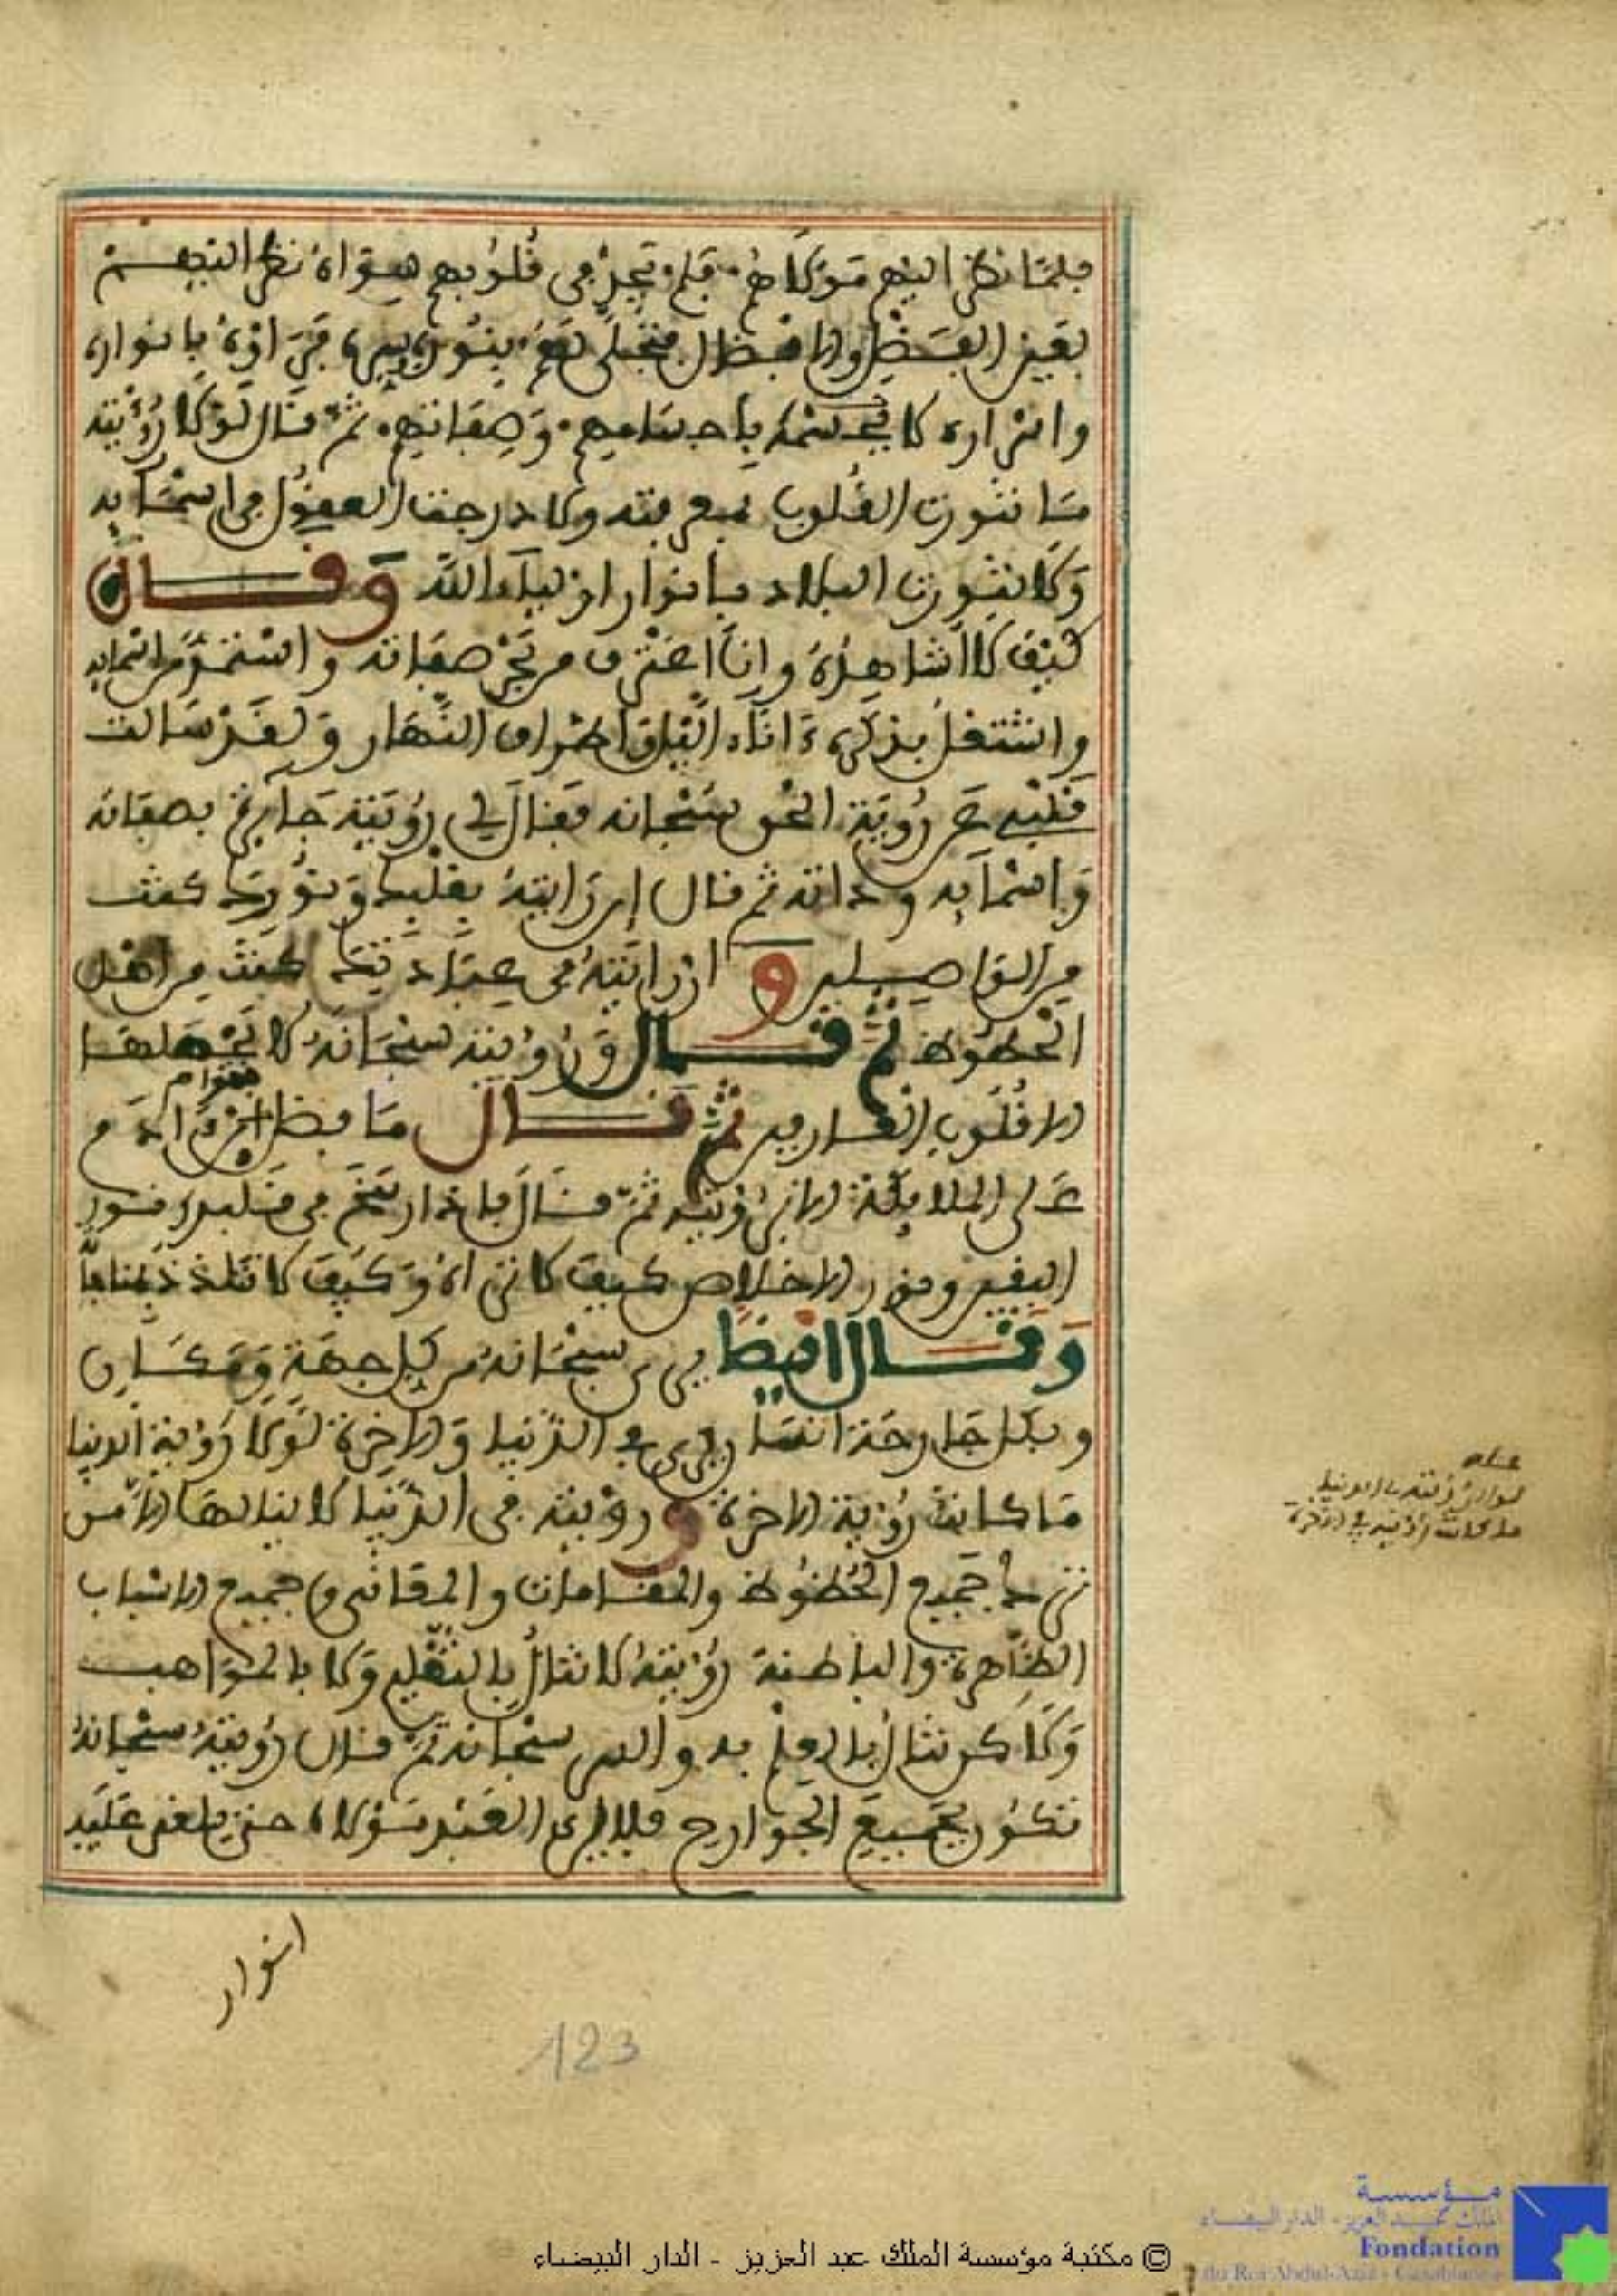 فلمّا نظر اليهم مَوْلَاهُم فلم يجد في قلوبهم سِوَاهُ نظر اليهم
بعين الفضل والافضال فتجلى لهم بنوره فرأوه بانواره
واسراره لا باجسامهم وصفاتهم ثم قال لولا رؤيته
ما تنورت القلوب بمعرفته ولا درجت العقول في اسمآيه
ولا تنورت البلاد بانوار اوليآء الله وقال
كيف لا اشاهده وانا اغترف من بحر صفاته واستمد من اسمايه
واشتغل بذكره ءاناء الليل واطراف النهار ولقد سالت
قلبي عن رؤية الحق سبحانه فقال لي رؤيته جآيزة بصفاته
واسمآيه وذاته ثم قال ان رايته بقلبك ونورك كنت
من الواصلين وان رايته في عبادتك كنت من اهل
الحظوظ ثم قال ورؤيته سبحانه لا يجهلها
الا قلوب العارفين ثم قال ما فضل خواص بني ءادم
على الملايكة الا برؤيته ثم قال فاذا رسخ في قلبك نور
اليقين ونور الاخلاص كيف لا تراه وكيف لا تتلذذ بمناجاته
وقال ايضا يرى سبحانه من كل جهة ومكان
وبكل جارحة انسان يرى في الدنيا والاخرة لولا رؤية الدنيا
ما كانت رؤية الاخرة ورؤيته في الدنيا لا ينالها الا من
ترك جميع الحظوظ والمقامات والمقاني وجميع الاسباب
الظاهرة والباطنة رؤيته لا تنال بالتقليد ولا بالمواهب
ولاكن تنال بالعلم به والسر سبحانه ثم قال رؤيته سبحانه
تكون بجميع الجوارح فلا يرى العبد مولاه حتى يلقى عليه
انوار
لولا رؤيته في الدنيا
ما كانت رؤيته في الاخرة
123
© مكتبة مؤسسة الملك عبد العزيز - الدار البيضاء
مؤسسة
الملك عبد العزيز - الدار البيضاء
Fondation
du Roi Abdul-Aziz - Casablanca